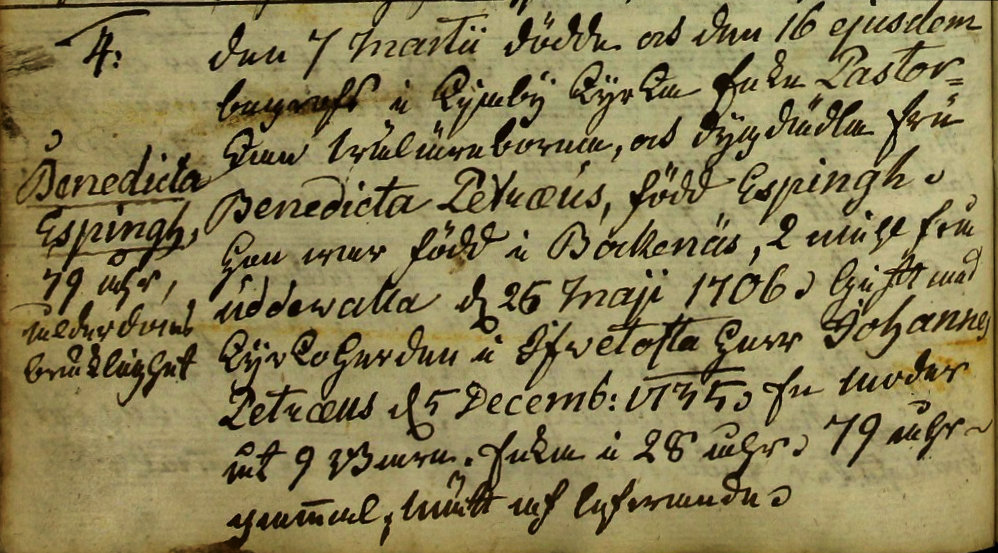 4:
Benedicta
Espingh,
79 åhr,
ålderdoms
bräklighet
den 7 Martii dödde och den 16 ejusdem
begrofs i Kyrkia Enke Pastor=
skan wälborna, och dygdädla Fru
Benedicta Petræus, född Espingh.
Hon war född i Bokenäs, 2 mihl från
Uddewalla d. 26 Maji 1706. Gift med
Kyrkoherden i Herr Johannes
Petræus d. 5 Decemb: 1735. En moder
åt 9 Barn. Enka i 28 åhr. 79 åhr
gammal, mätt af lefwande.